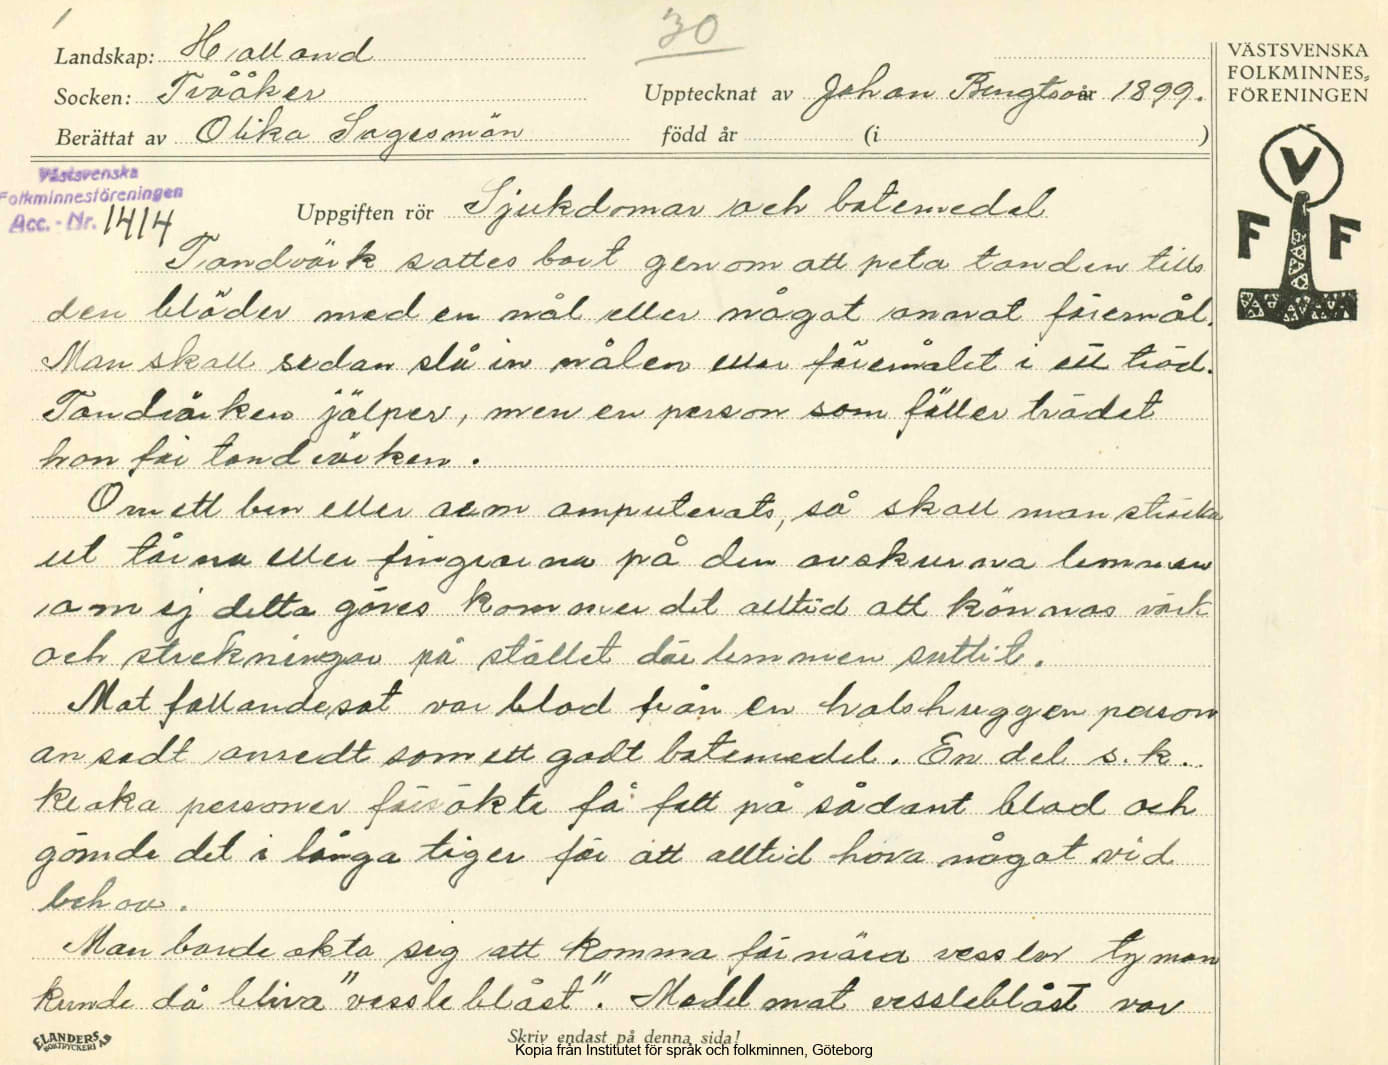 30
Landskap: Halland
Socken: Tvååker
Upptecknat av Johan Bengtson år 1899.
Berättat av Olika Sagesmän född år (i )
VÄSTSVENSKA
FOLKMINNES-
FÖRENINGEN
V
F F
Västsvenska
Folkminnesföreningen
Acc. - Nr. 1414
Uppgiften rör Sjukdomar och botemedel
Tandvärk sattes bort genom att peta tanden tills
den blöder med en nål eller något annat föremål.
Man skall sedan slå in nålen eller föremålet i ett träd.
Tandvärken jälper, men en person som fäller trädet
hon får tandvärken.
Om ett ben eller arm amputerats, så skall man sträcka
ut tårna eller fingrarna på den avskurna lemmen
om ej detta göres kommer det alltid att kännas värk
och streckningar på stället där lemmen suttit.
Mot fallandesot var blod från en halshuggen person
ansedt ansedt som ett godt botemedel. En del s. k.
kloka personer försökte få fatt på sådant blod och
gömde det i långa tiger för att alltid hava något vid
behov.
Man borde akta sig att komma för nära vesslor ty man
kunde då bliva "vessleblåst". Medel mot vessleblåst var
ELANDERS
BOKTRYCKERI AB
Skriv endast på denna sida!
Kopia från Institutet för språk och folkminnen, Göteborg